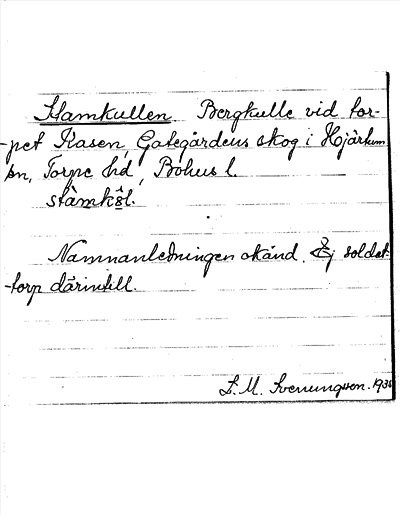 Stamkullen. Bergkulle vid tor-
pet Kasen, Gategårdens skog i Hjärtum
sn, Torpe hd, Bohus l.
stàmkŏ̀l.
Namnanledningen okänd. Ej soldat-
torp därintill.
L. M. Svenungsson. 193